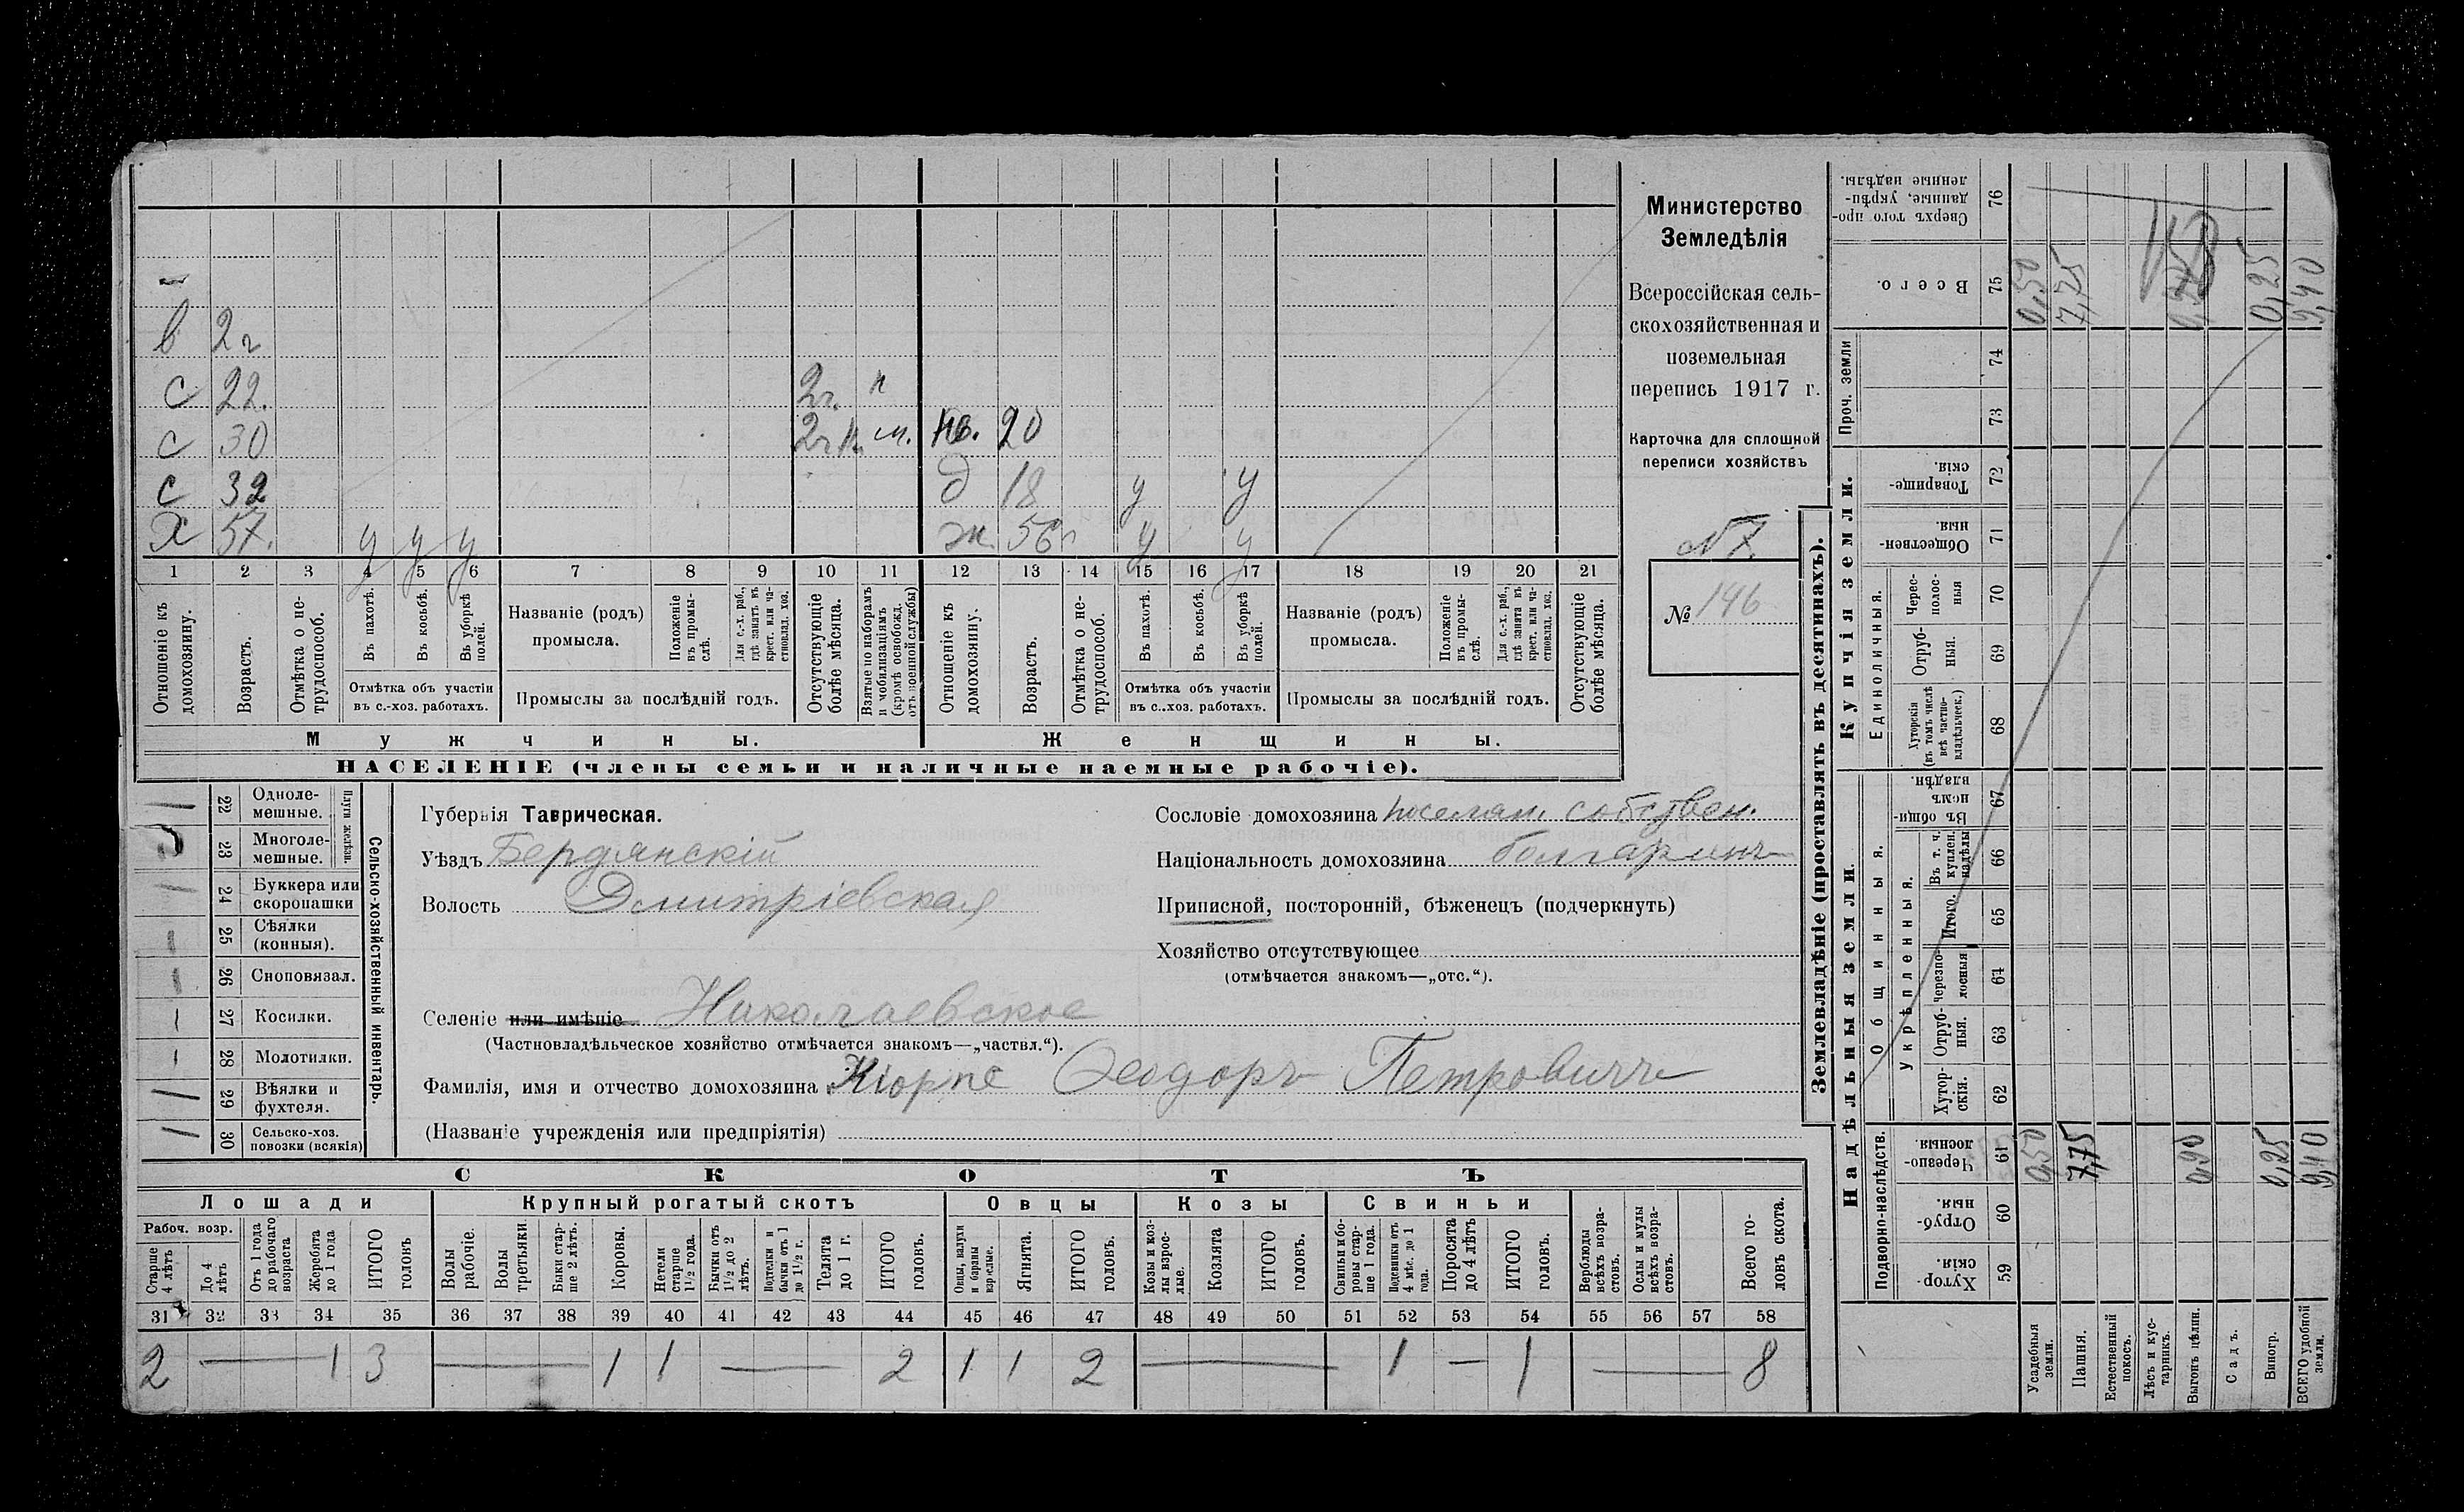 в 2г
с 22. 2г. н
с 30 2г н. м. нв. 20
с 32 д 18 у у
Х 57. у у у ж. 56 у у
1 2 3 4 5 6 7 8 9 10 11 12 13 14 15 16 17 18 19 20 21
Отношеніе къ домохозяину.
Возрастъ.
Отмѣтка о не-трудоспособ.
Въ пахотѣ.
Въ косьбѣ.
Въ уборкѣ полей.
Отмѣтка объ участіи
въ с.-хоз. работахъ.
Названіе (родъ)
промысла.
Положеніе въ промы-слѣ.
Для с.-х. раб., гдѣ занятъ въ крест. или ча-стновлад. хоз.
Промыслы за послѣдній годъ.
Отсутствующіе болѣе мѣсяца.
Взятые по наборамъ и мобилизаціямъ (кромѣ освобожд. отъ военной службы)
Отношеніе къ домохозяину.
Возрастъ.
Отмѣтка о не-трудоспособ.
Въ пахотѣ.
Въ косьбѣ.
Въ уборкѣ полей.
Отмѣтка объ участіи
въ с..хоз. работахъ.
Названіе (родъ)
промысла.
Положеніе въ промы-слѣ.
Для с.-х. раб., гдѣ занята въ крест. или ча-стновлад. хоз.
Промыслы за послѣдній годъ.
Отсутствующіе болѣе мѣсяца.
Мужчины.
Женщины.
НАСЕЛЕНІЕ (члены семьи и наличные наемные рабочіе).
Министерство
Земледѣлія
Всероссійская сель-
скохозяйственная и
поземельная
перепись 1917 г.
Карточка для сплошной
переписи хозяйствъ
№ 7.
№ 146
22 Одноле-
мешные.
23 Многоле-
мешные.
Плуги желѣзн.
24 Буккера или
скоропашки
25 Сѣялки
(конныя).
26 Сноповязал.
27 Косилки.
28 Молотилки.
29 Вѣялки и
фухтеля.
30 Сельско-хоз.
повозки (всякія)
Сельско-хозяйственный инвентарь.
Губернія Таврическая.
Уѣздъ Бердянскій
Волость Дмитріевская
Сословіе домохозяина поселян. собствен.
Національность домохозяина болгаринъ
Приписной, посторонній, бѣженецъ (подчеркнуть)
Хозяйство отсутствующее
(отмѣчается знакомъ—„отс.“).
Селеніе или имѣніе Николаевское
(Частновладѣльческое хозяйство отмѣчается знакомъ—„частвл.“).
Фамилія, имя и отчество домохозяина Кюрпе Ѳеодоръ Петровичъ
(Названіе учрежденія или предпріятія)
СКОТЪ
Лошади Крупный рогатый скотъ Овцы Козы Свиньи
Рабоч. возр.
Старше 4 лѣтъ
До 4 лѣтъ
Отъ 1 года до рабочаго возраста
Жеребята до 1 года
ИТОГО головъ
Волы рабочіе.
Волы третьяки.
Быки стар-ше 2 лѣтъ.
Коровы.
Нетели старше 1½ года.
Бычки отъ 1½ до 2 лѣтъ.
Подтелки и бычки отъ 1 до 1½ г.
Телята до 1 г.
ИТОГО головъ.
Овцы, валухи и бараны взрослые.
Ягнята.
ИТОГО головъ.
Козы и коз-лы взрос-лые.
Козлята
ИТОГО головъ.
Свиньи и бо-ровы стар-ше 1 года.
Подсвинки отъ 4 мѣс. до 1 года.
Поросята до 4 лѣтъ
ИТОГО головъ.
Верблюды всѣхъ возра-стовъ.
Ослы и мулы всѣхъ возра-стовъ.
Всего го-ловъ скота.
31 32 33 34 35 36 37 38 39 40 41 42 43 44 45 46 47 48 49 50 51 52 53 54 55 56 57 58
2 — 1 3 — 1 1 — 2 1 1 2 — 1 — 1 — 8
Землевладѣніе (проставлять въ десятинахъ).
Надѣльныя земли.
Купчія земли.
Проч. земли
Подворно-наслѣдств.
Общинныя.
Укрѣпленныя.
Единоличныя.
Хутор-скія. 59
Отруб-ныя. 60
Черезпо-лосныя. 61
Хутор-скія. 62
Отруб-ныя. 63
Черезпо-лосныя 64
Итого. 65
Въ т. ч. куплен. надѣлы 66
Въ общин-номъ владѣн. 67
Хуторскія (въ томъ числѣ всѣ частно-владѣльческ.) 68
Отруб-ныя. 69
Черес-полос-ныя 70
Обществен-ныя. 71
Товарище-скія. 72
73
74
Всего. 75
Сверхъ того про-данные, укрѣп-ленные надѣлы. 76
Усадебныя земли. 0,50 0,50
Пашня. 7,75 7,75
Естественный покосъ.
Лѣсъ и кус-тарникъ.
Выгонъ цѣлин. 0,90
Садъ.
Виногр. 0,25 0,25
ВСЕГО удобной земли. 9,40 9,40